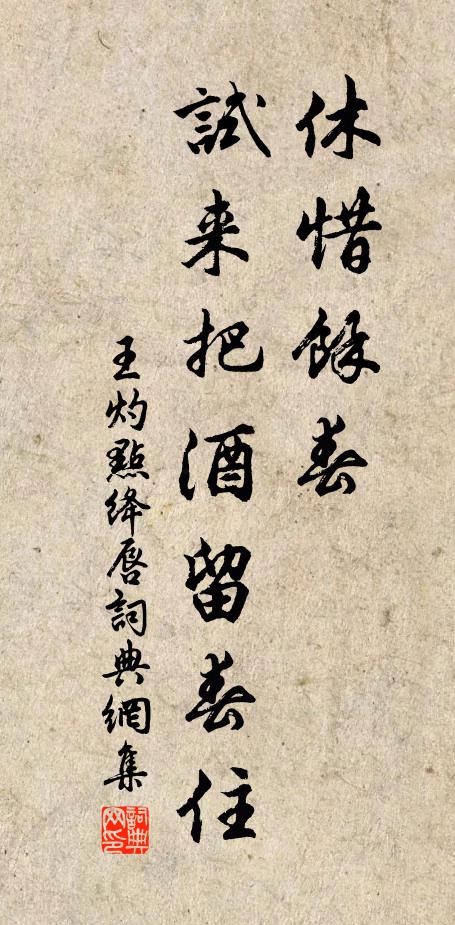 休惜餘春
試来把酒留春住
王灼點絳唇詞典網集
詞典
网印